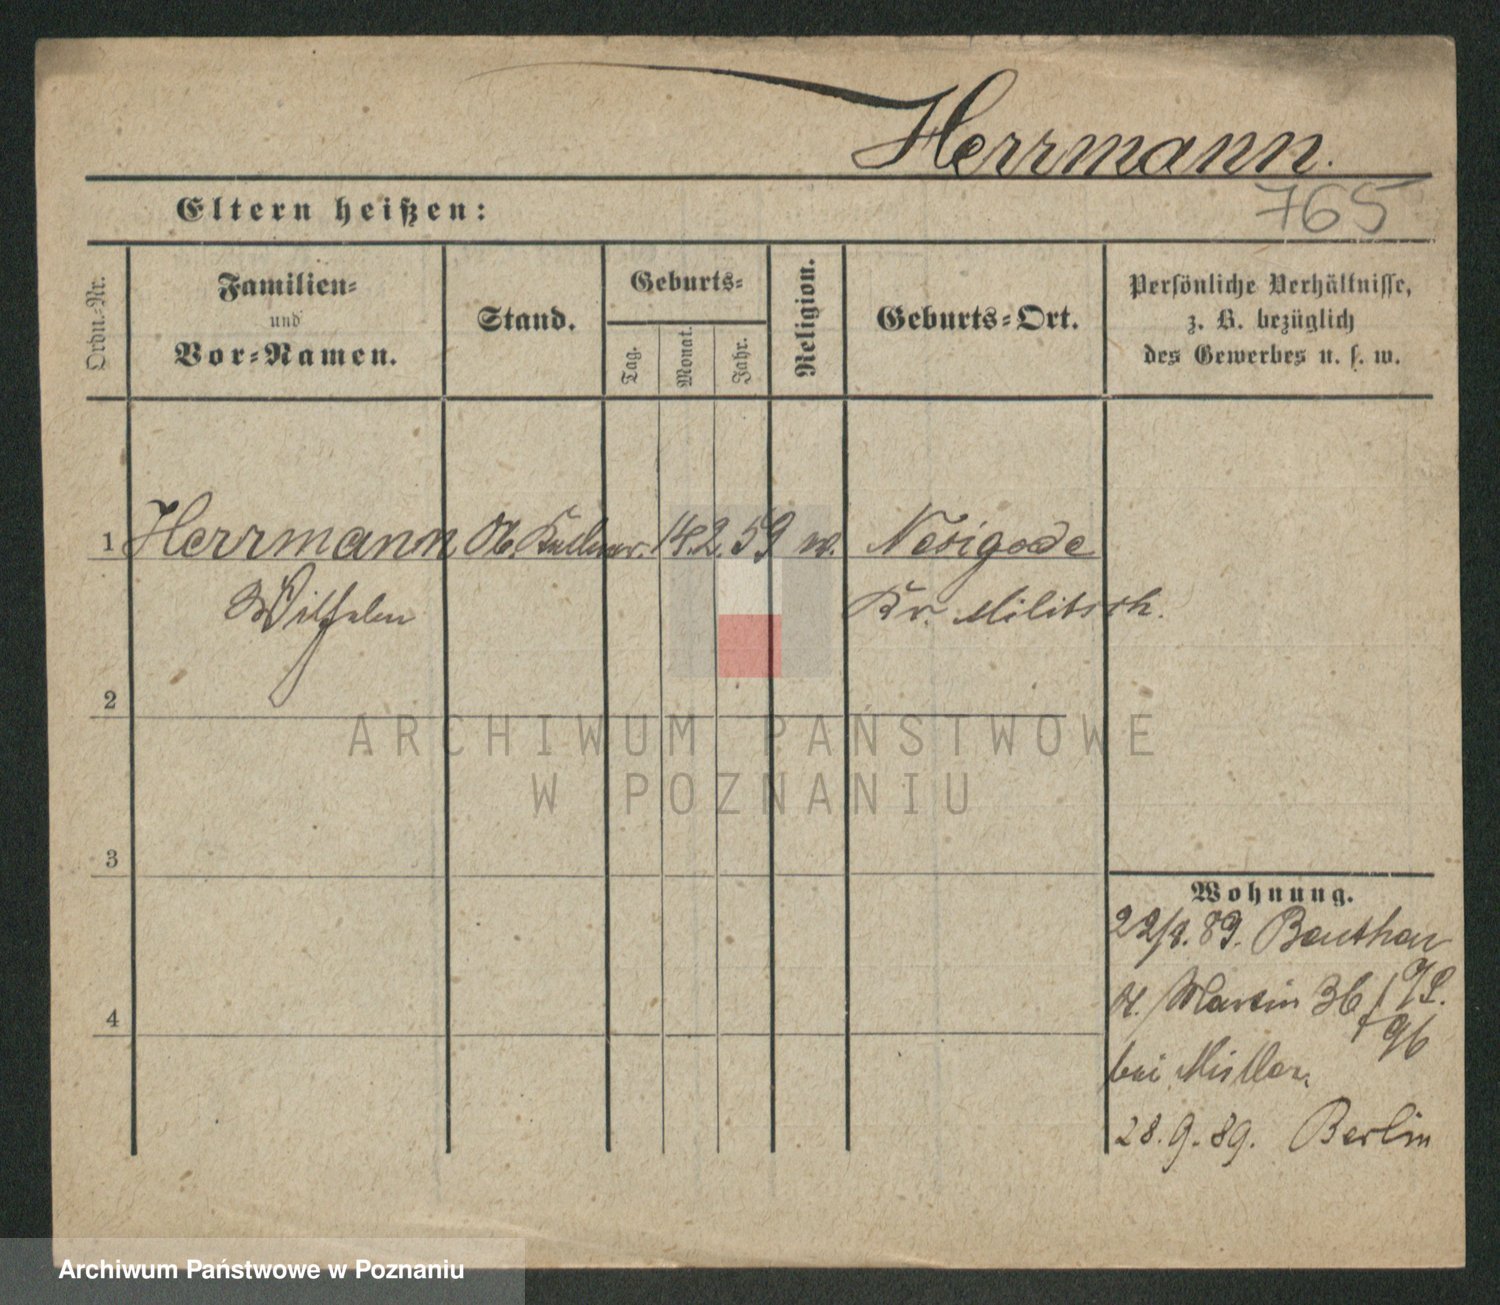 Herrmann.
765
Eltern heißen:
Ordn.-Nr.
Familien-
und
Vor-Namen.
Stand.
Geburts-
Tag.
Monat.
Jahr.
Religion.
Geburts-Ort.
Persönliche Verhältnisse,
z. B. bezüglich
des Gewerbes u. s. w.
1 Herrmann 14. 2. 59 Nesigode
Wilhelm Kr. Militsch.
2
ARCHIWUM PAŃSTWOWE
W POZNANIU
3
Wohnung.
89. Bauthen
4
St. Martin 36
96
bei Müller.
28. 9. 89. Berlin
Archiwum Państwowe w Poznaniu